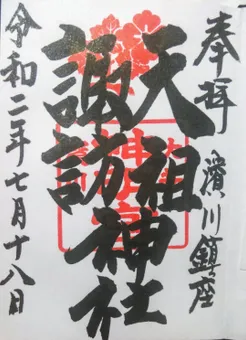 奉拝
濱川鎮座
天祖神社
諏訪
令和二年七月十八日